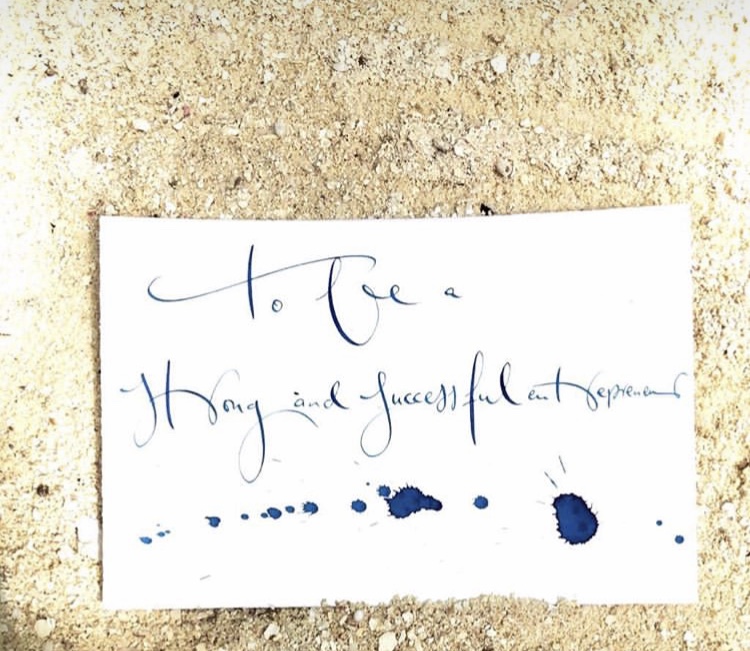 to be a
strong and successful entrepreneur